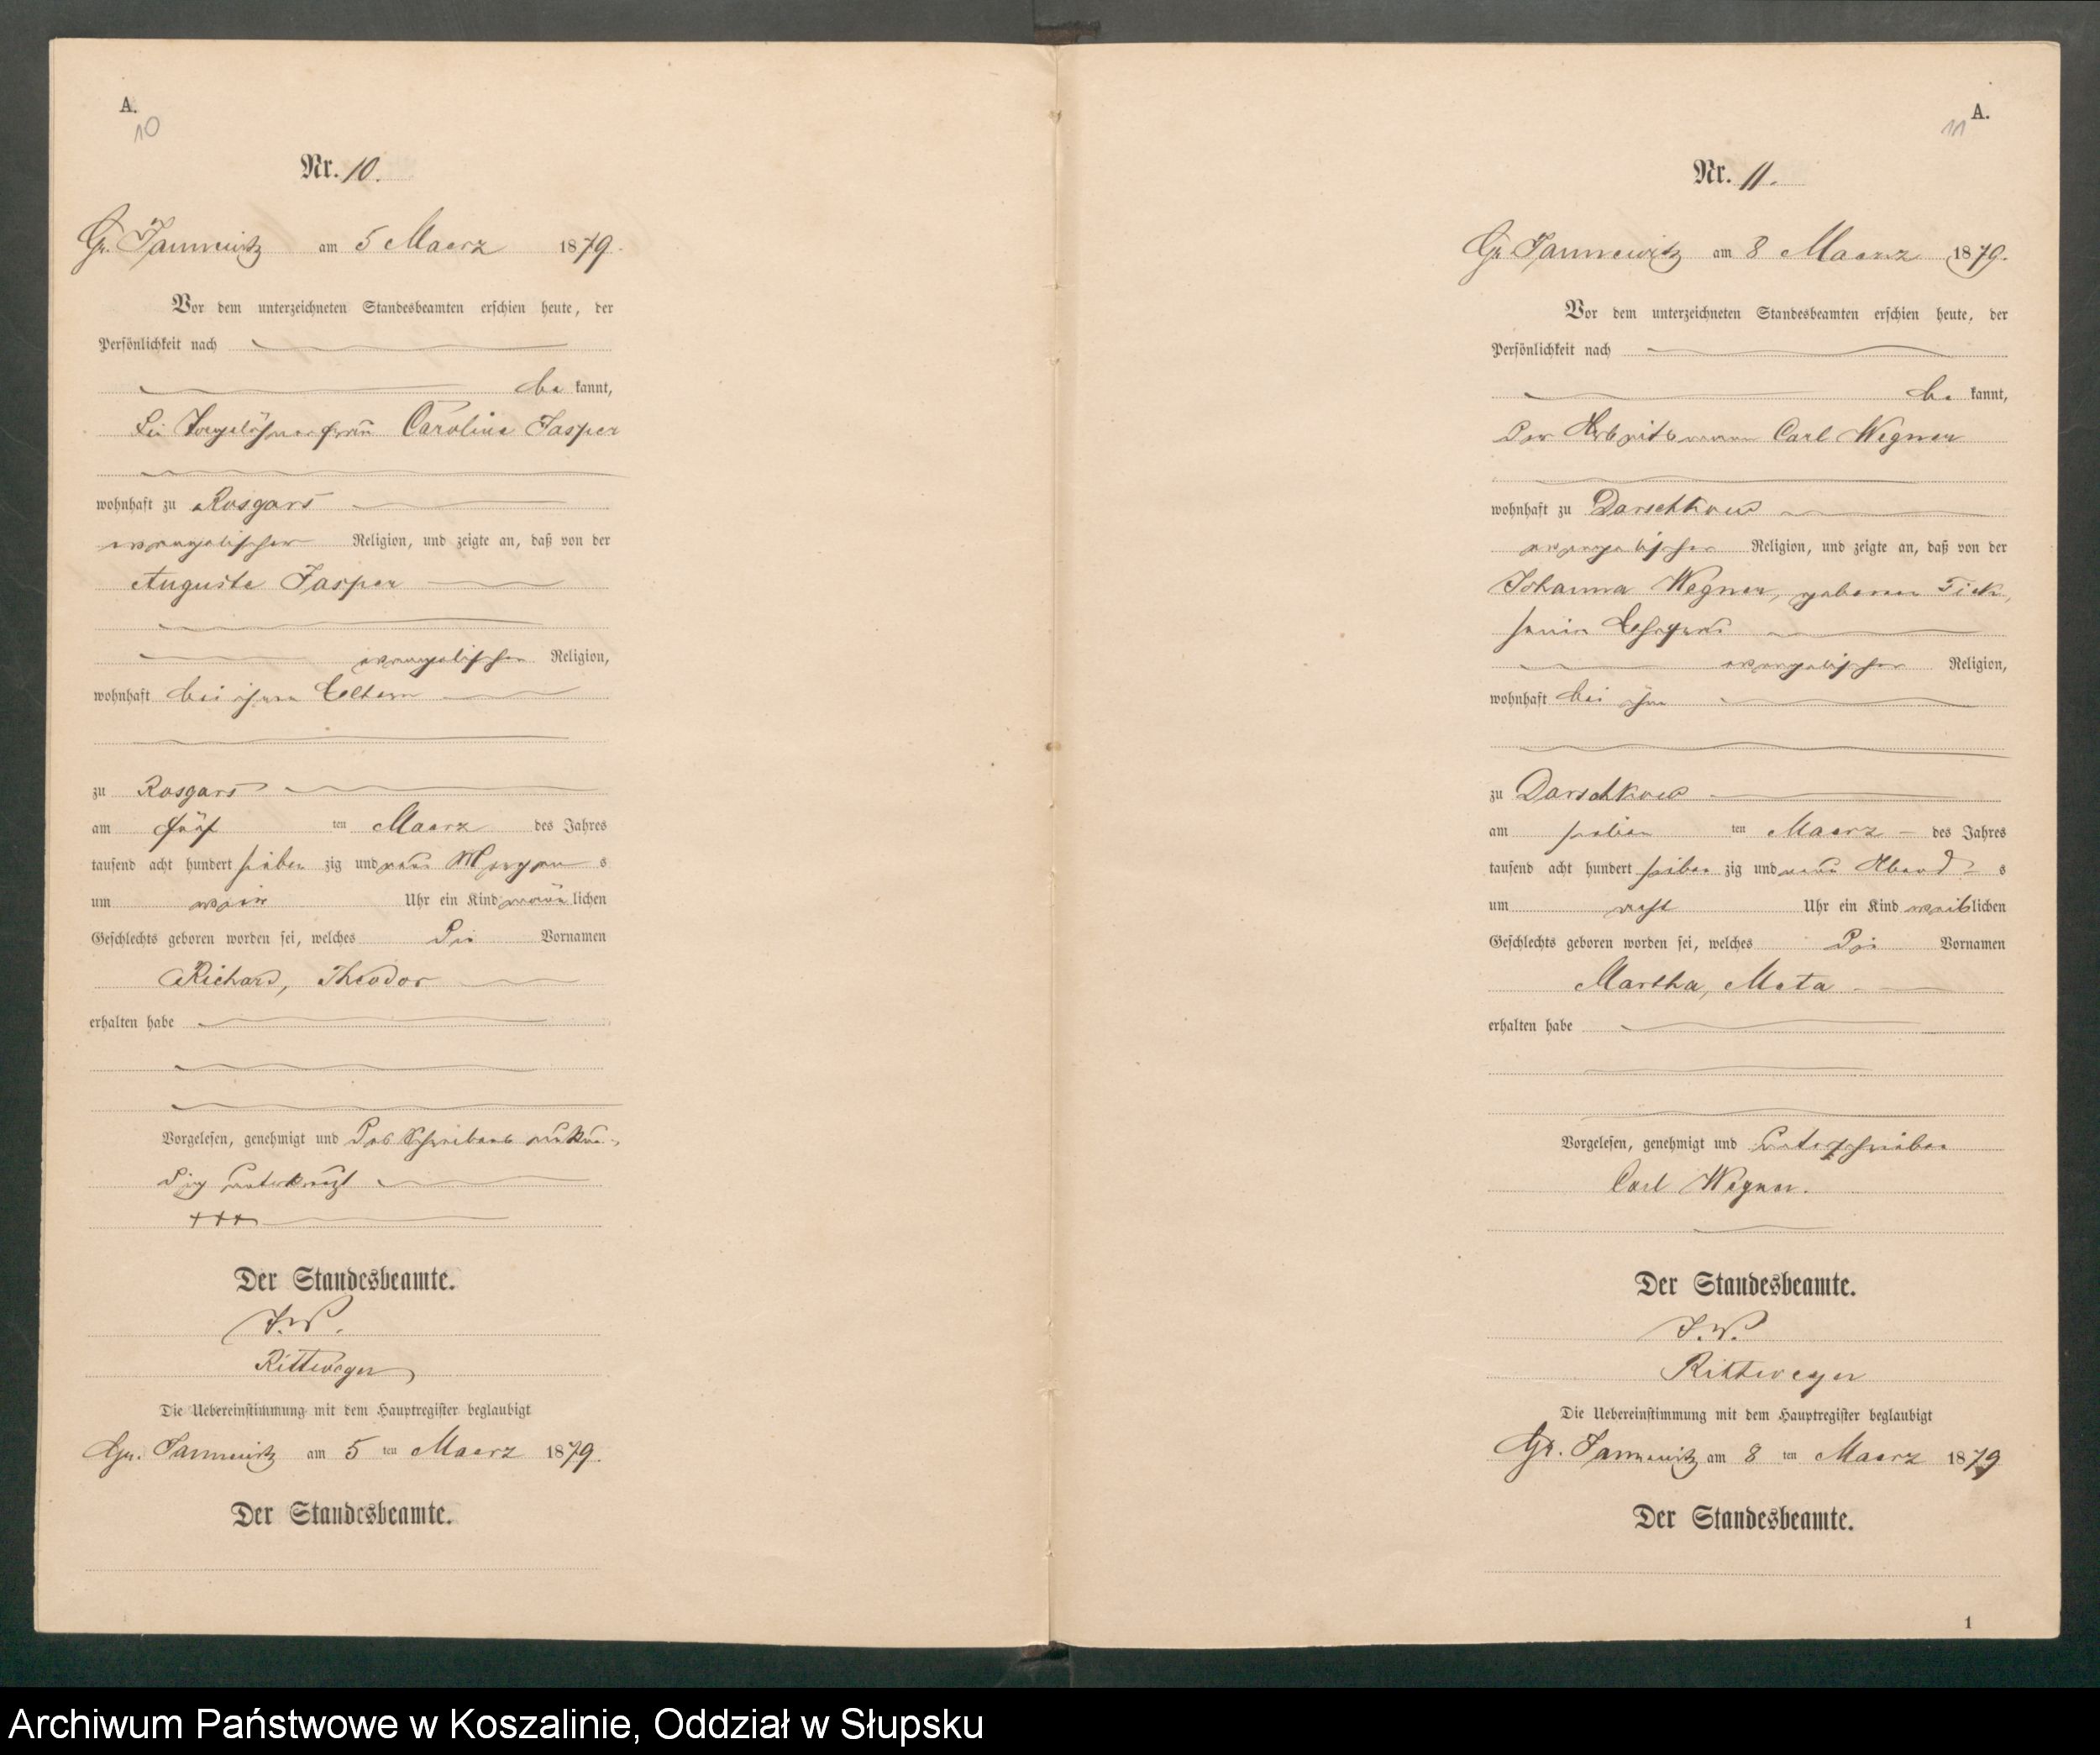 A.
10
Nr. 10.
Gr. Jannewitz am 5 Maerz 1879.
Vor dem unterzeichneten Standesbeamten erschien heute, der
Persönlichkeit nach
be kannt,
die Tagelöhnerfrau Caroline Jasper
wohnhaft zu Rosgars
evangelischer Religion, und zeigte an, daß von der
Auguste Jasper
evangelischer Religion,
wohnhaft bei ihren Eltern
zu Rosgars
am fünf ten Maerz des Jahres
tausend acht hundert sieben zig und neun Morgens
um Uhr ein Kind männlichen
Geschlechts geboren worden sei, welches die Vornamen
Richard, Theodor
erhalten habe
Vorgelesen, genehmigt und Das Schreibens unkun-
dig unterkreuzt
+++
Der Standesbeamte.
J.V.
Rittweger
Die Uebereinstimmung mit dem Hauptregister beglaubigt
Gr. Jannewitz am 5 ten Maerz 1879.
Der Standesbeamte.
A.
11
Nr. 11.
Gr Jannewitz am 8 Maerz 1879.
Vor dem unterzeichneten Standesbeamten erschien heute, der
Persönlichkeit nach
be kannt,
Der Arbeitsmann Carl Wegner
wohnhaft zu Darschkow
evangelischer Religion, und zeigte an, daß von der
Johanna Wegner, geborene Fick,
seine Ehefrau
evangelischer Religion,
wohnhaft bei ihm
zu Darschkow
am sieben ten Maerz des Jahres
tausend acht hundert sieben zig und neun Abends
um acht Uhr ein Kind weiblichen
Geschlechts geboren worden sei, welches Die Vornamen
Martha, Meta
erhalten habe
Vorgelesen, genehmigt und unterschrieben
Carl Wegner.
Der Standesbeamte.
J.V.
Rittweger
Die Uebereinstimmung mit dem Hauptregister beglaubigt
Gr. Jannewitz am 8 ten Maerz 1879
Der Standesbeamte.
1
Archiwum Państwowe w Koszalinie, Oddział w Słupsku